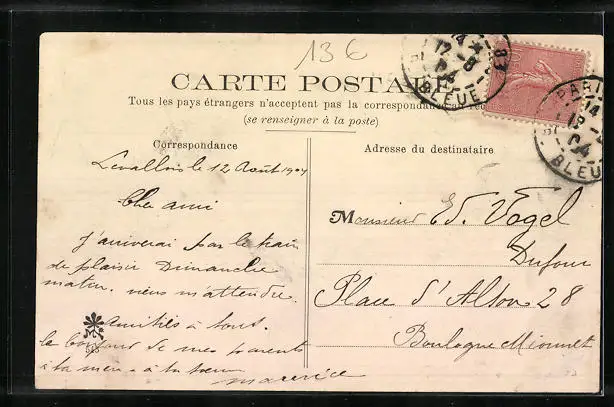 13 €
CARTE POSTALE
Tous les pays étrangers n'acceptent pas la correspondance au
(se renseigner à la poste)
Correspondance
Levallois le 12 Août 1904
Cher ami
J'arriverai par le train
de plaisir Dimanche
matin. viens m'attendre.
Amitiés à tous.
le bonjour de mes parents
à ta mère à ta sœur
maurice
Adresse du destinataire
Monsieur Ed. Vogel
Dufour
Place d'Alton 28
Boulogne
PARIS
14
12 -8
04
BLEUE
14
12 -8
04
BLEUE